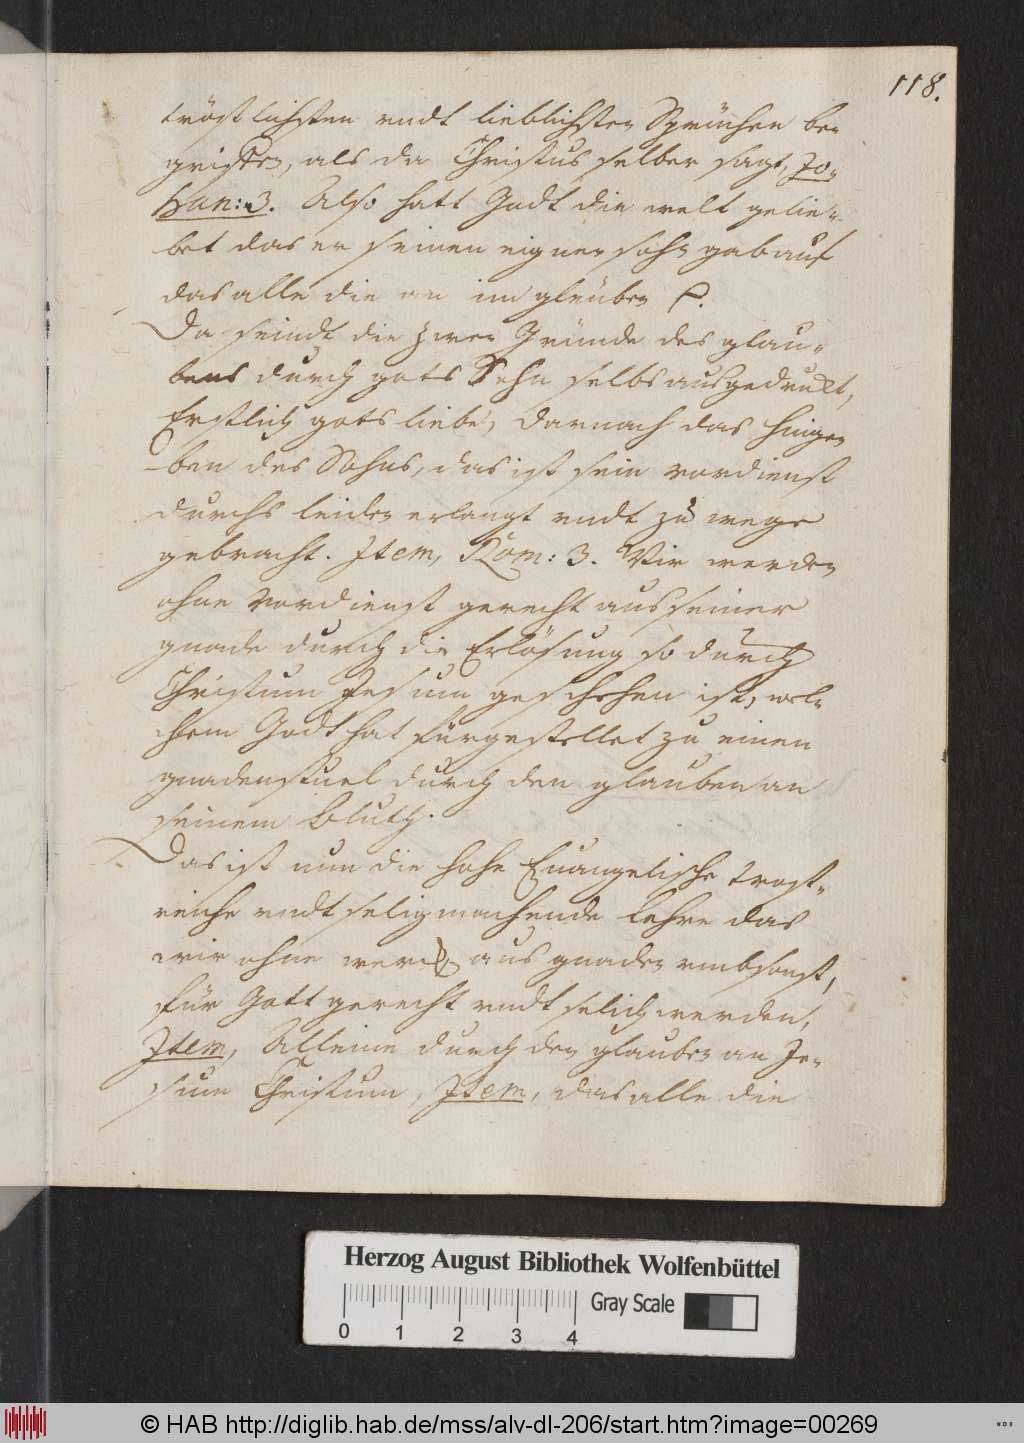 118.
tröstlichsten undt lieblichsten Sprüchen be-
griffen, als da Christus selber sagt, Jo-
han: 3. Also hatt Godt die welt gelie-
bet das er seinen eignen sohn gab auf
das alle die an im gleuben
Da seindt die zwen Gründe des glau-
bens durch gots Sohn selbs ausgedrukt,
Erstlich gots liebe, darnach das hinge-
ben des Sohns, das ist sein vordienst
durchs leiden erlangt undt zu wege
gebracht. Item, Rom: 3. Wir werden
ohne vordienst gerecht aus seiner
gnade durch die Erlösung so durch
Christum Jesum geschehen ist, wel-
chem Godt hat fürgestellet zu einen
gnadenstuel durch den glauben an
seinem Bluth.
Das ist nun die hohe Euangelische trost-
reiche undt seligmachende Lehre das
wir ohne werck aus gnaden umbsonst,
für Gott gerecht undt selich werden,
Item, Alleine durch den glauben an Je-
sum Christum, Item, das alle die
Herzog August Bibliothek Wolfenbüttel
Gray Scale
0 1 2 3 4
© HAB http://diglib.hab.de/mss/alv-dl-206/start.htm?image=00269